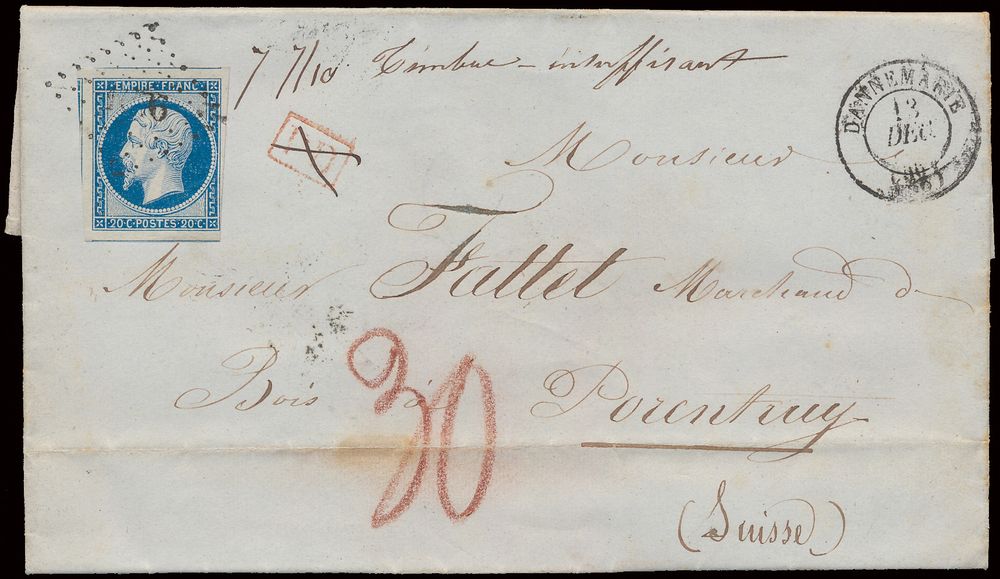 7 7/10 Timbre-insuffisant
EMPIRE·FRANC·
20·C·POSTES·20·C·
DANNEMARIE
13
DEC
(66)
Monsieur
Monsieur Fattet Marchand de
Bois à Porentruy
30
(Suisse)